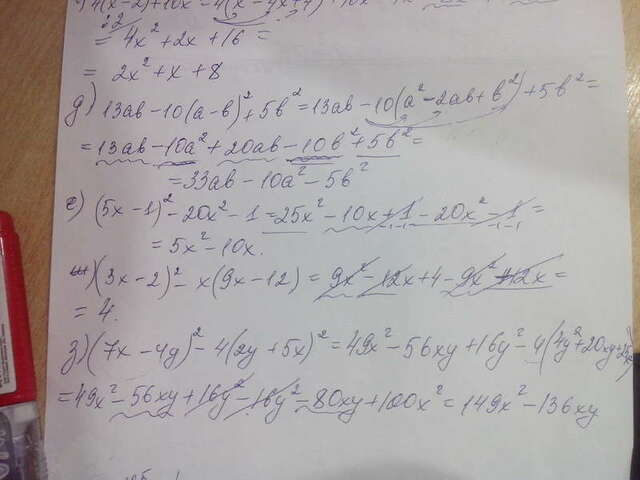 = 4x² + 2x + 16 =
= 2x² + x + 8
д) 13ab - 10(a - b)² + 5b² = 13ab - 10(a² - 2ab + b²) + 5b² =
= 13ab - 10a² + 20ab - 10b² + 5b² =
= 33ab - 10a² - 5b²
е) (5x - 1)² - 20x² - 1 = 25x² - 10x + 1 - 20x² - 1 =
= 5x² - 10x.
ж) (3x - 2)² - x(9x - 12) = 9x² - 12x + 4 - 9x² + 12x =
= 4.
з) (7x - 4y)² - 4(2y + 5x)² = 49x² - 56xy + 16y² - 4(4y² + 20xy + 25x²)
= 49x² - 56xy + 16y² - 16y² - 80xy + 100x² = 149x² - 136xy